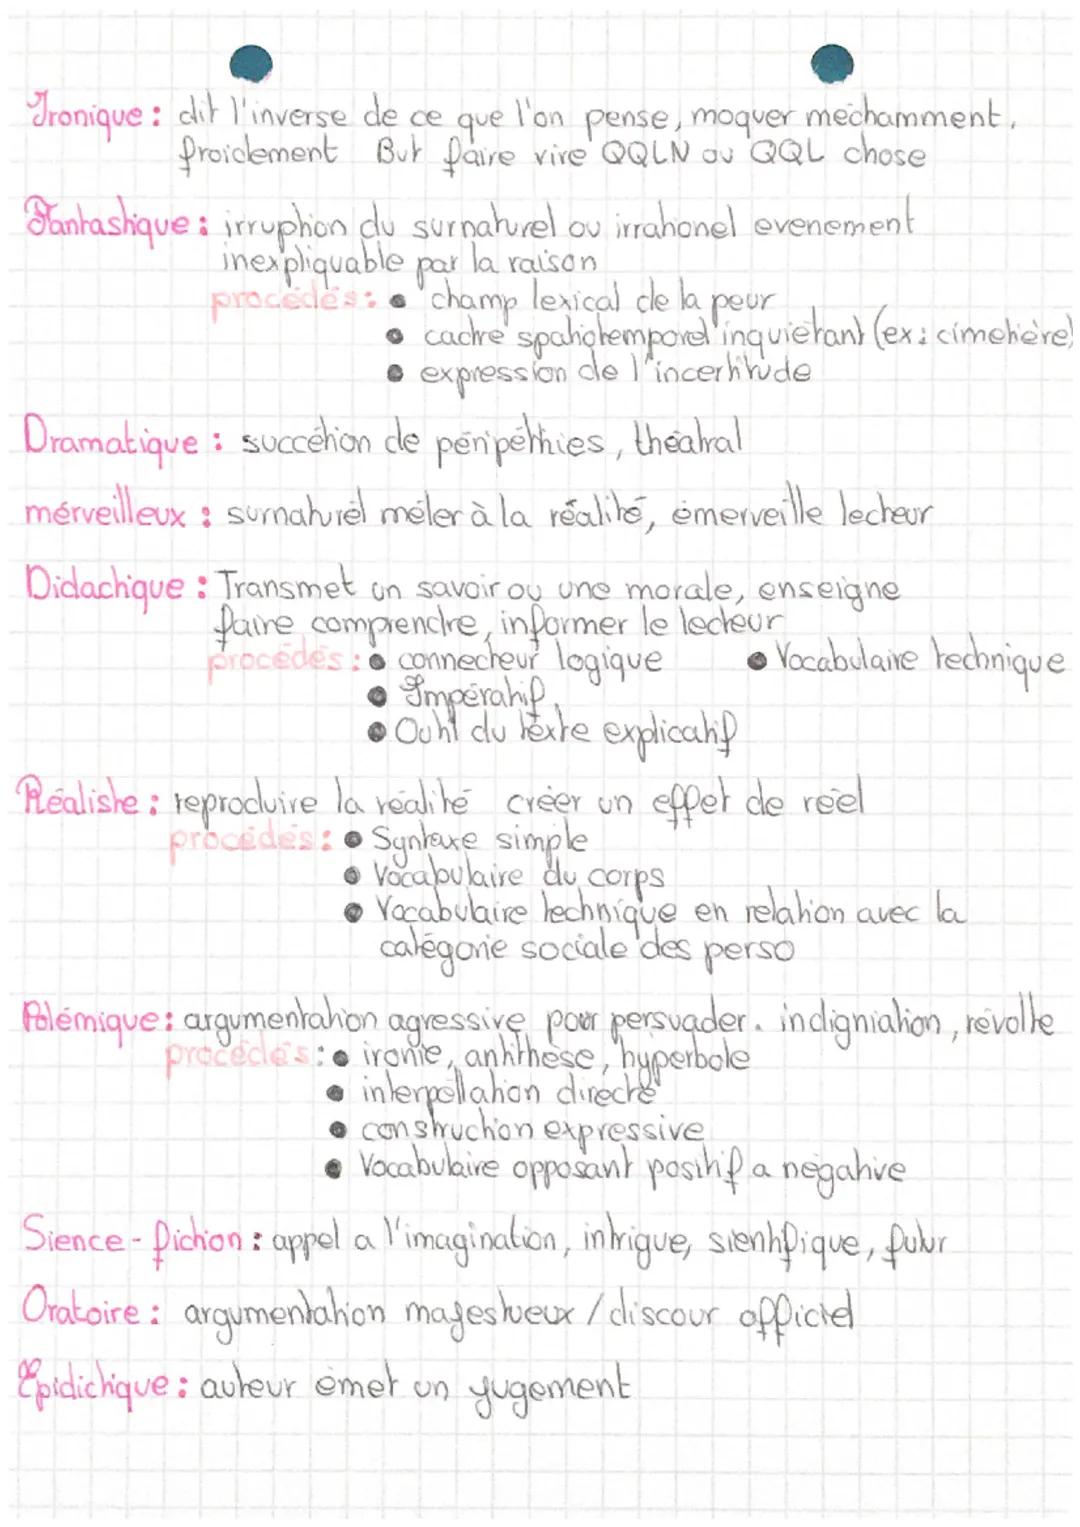 Ironique : dit l'inverse de ce que l'on pense, moquer méchamment,
froidement But faire rire QQLN ou QQL chose
Fantastique : irruption du surnaturel ou irrationel evenement
inexpliquable par la raison
procédés : • champ lexical de la peur
• cadre spatiotemporel inquiétant (ex : cimetière)
• expression de l'incertitude
Dramatique : succétion de péripéthies, théatral
mérveilleux : surnaturel méler à la réalité, émerveille lecteur
Didactique : Transmet un savoir ou une morale, enseigne
faire comprendre, informer le lecteur
procédés : • connecteur logique • Vocabulaire technique
• Impératif
• Outil du texte explicatif
Réaliste : reproduire la réalité créer un effet de réel
procédés : • Syntaxe simple
• Vocabulaire du corps
• Vocabulaire technique en relation avec la
catégorie sociale des perso
Polémique : argumentation agressive pour persuader. indigniation, révolte
procédés : • ironie, antithèse, hyperbole
• interpellation directe
• construction expressive
• Vocabulaire opposant positif a négative
Sience-fiction : appel a l'imagination, intrigue, sientifique, futur
Oratoire : argumentation majestueux / discour officiel
Epidictique : auteur émet un jugement